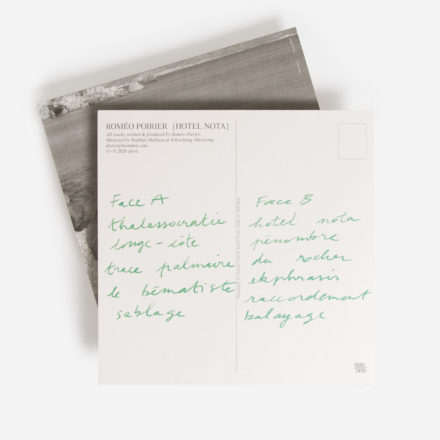 ROMÉO POIRIER [HOTEL NOTA]
All tracks written & produced by Roméo Poirier
Mastered by Stephan Mathieu at Schwebung Mastering
℗+© 2020 sferic
Face A
thalassocratie
longe-côte
trace palmaire
le bématiste
sablage
Face B
hotel nota
pénombre
du rocher
ekphrasis
raccordement
balayage